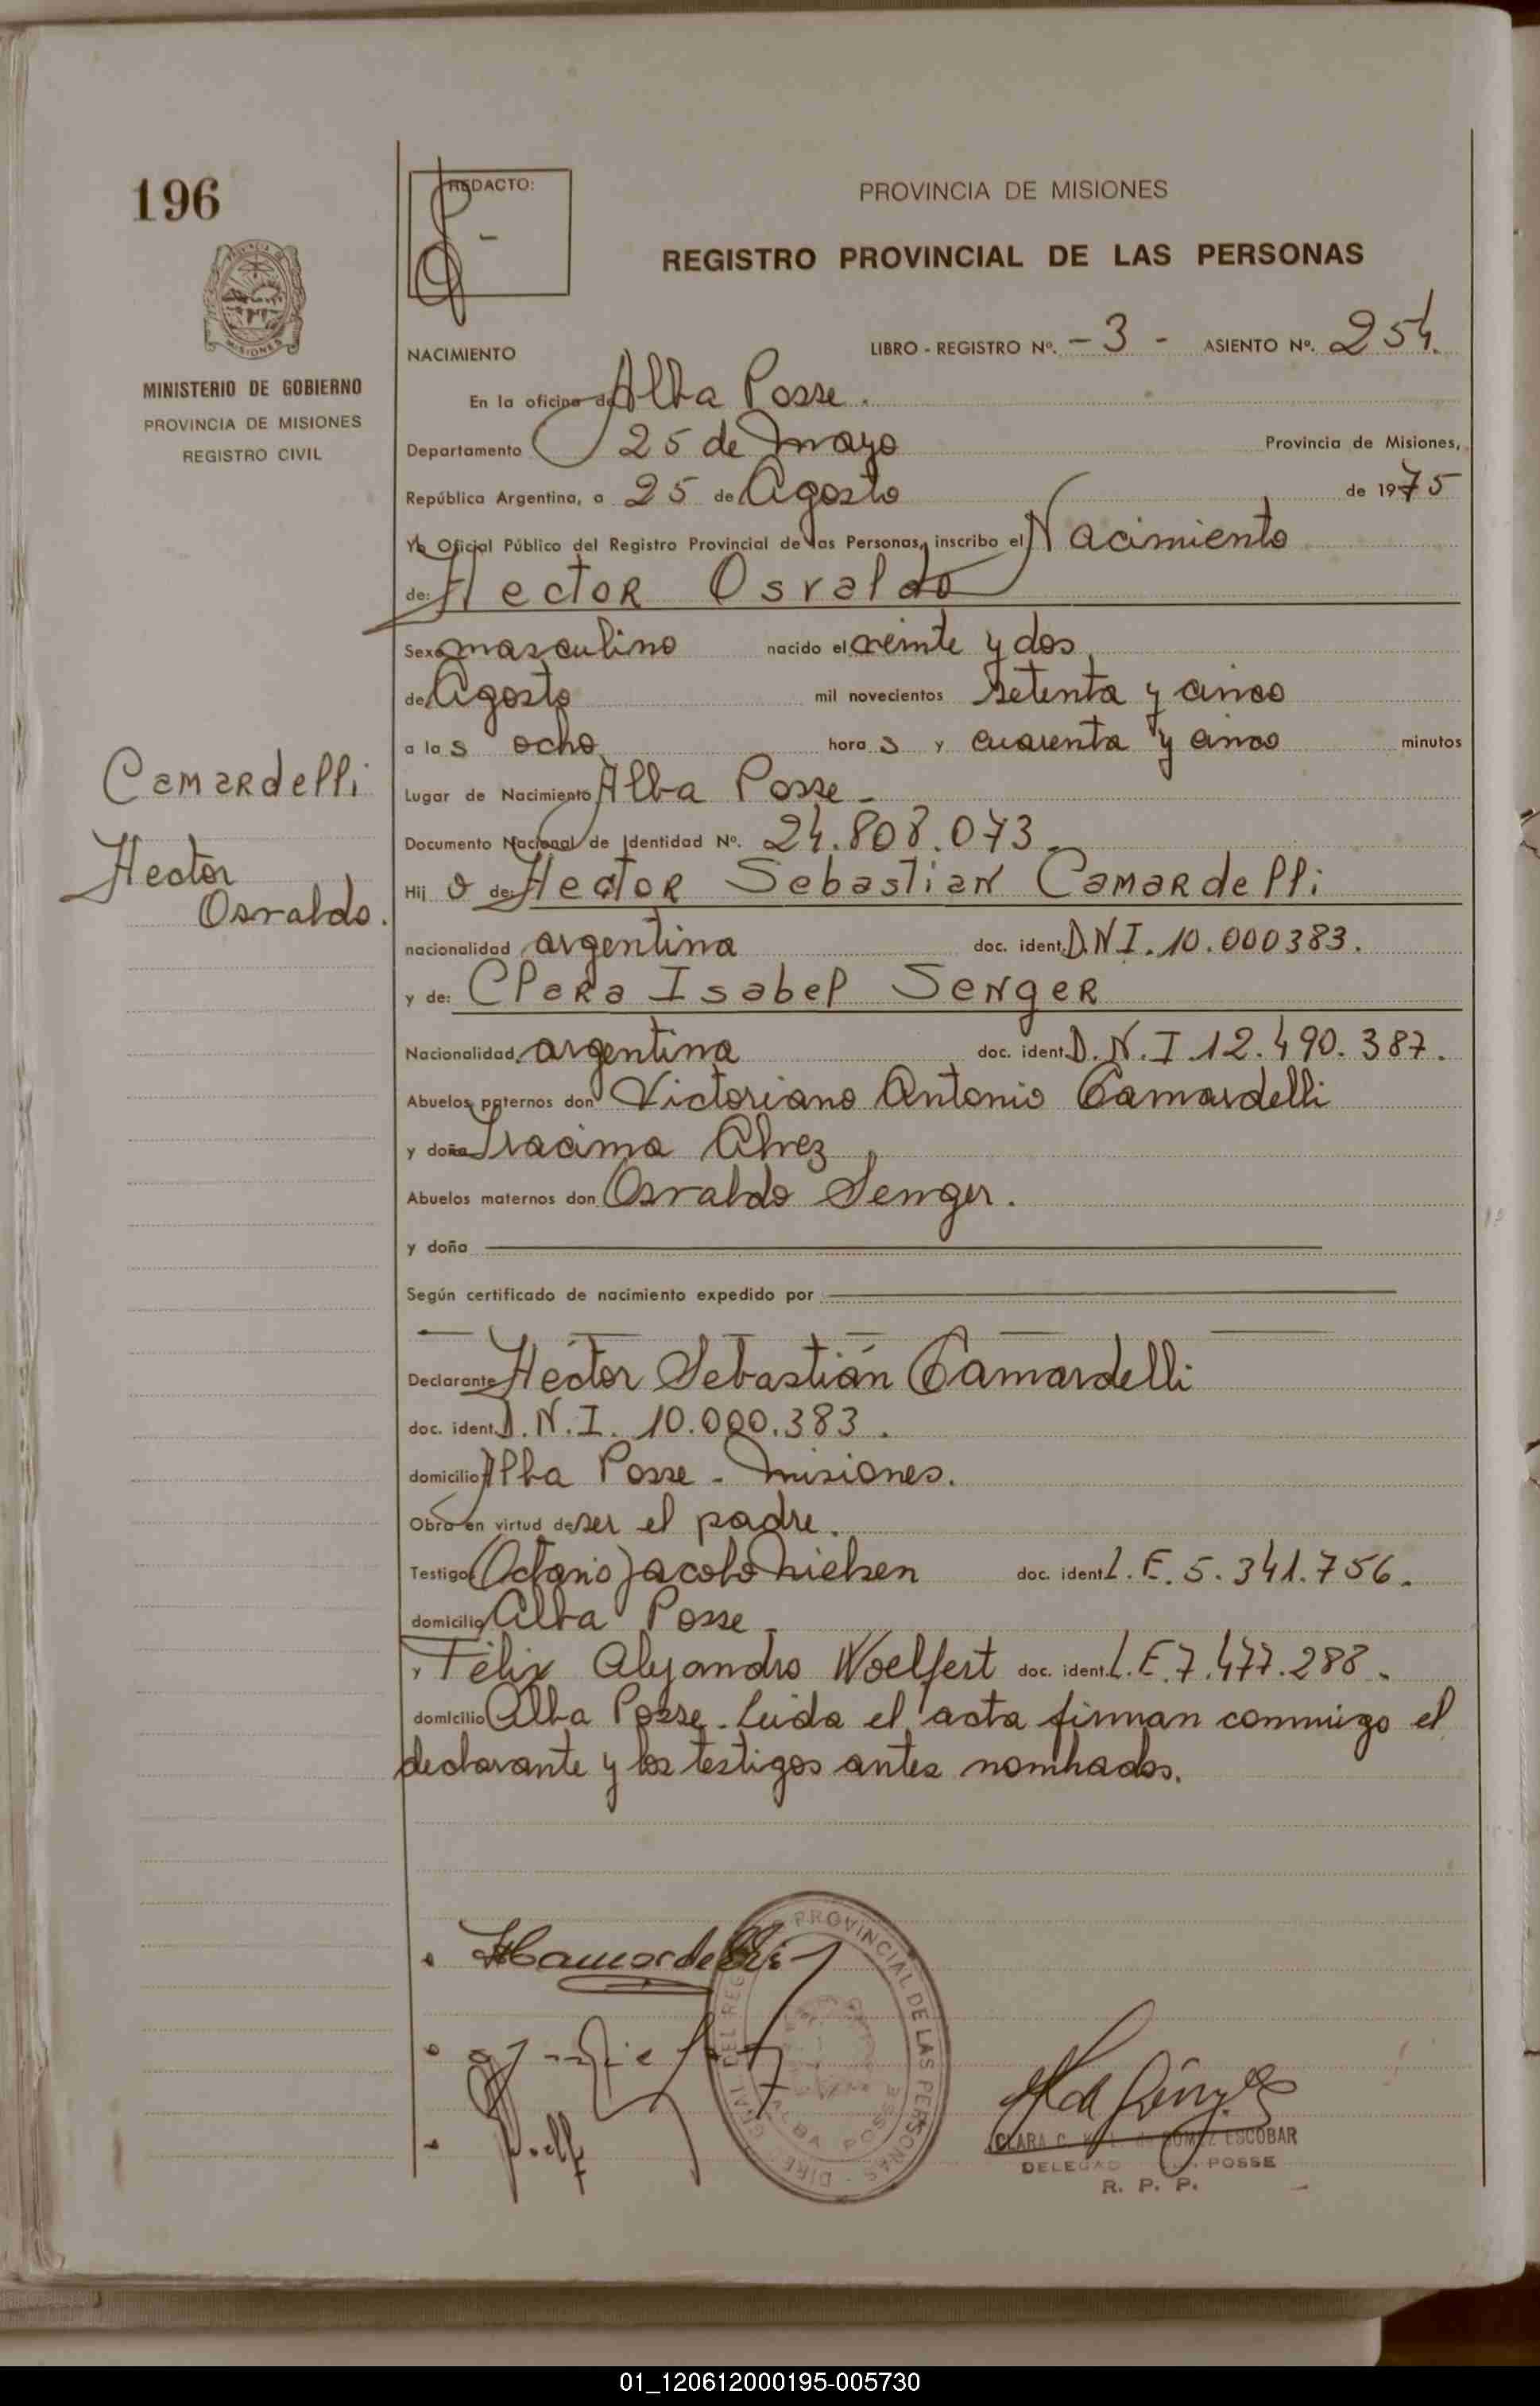 196
REDACTO:
PROVINCIA DE MISIONES
REGISTRO PROVINCIAL DE LAS PERSONAS
MISIONES
MINISTERIO DE GOBIERNO
PROVINCIA DE MISIONES
REGISTRO CIVIL
NACIMIENTO
LIBRO - REGISTRO Nº. - 3 - ASIENTO Nº. 254.
En la oficina de Alba Posse.
Departamento 25 de Mayo Provincia de Misiones,
República Argentina, a 25 de Agosto de 1975
Yo Oficial Público del Registro Provincial de las Personas, inscribo el Nacimiento
de: Hector Osvaldo
Sexo masculino nacido el veinte y dos
de Agosto mil novecientos setenta y cinco
a las ocho horas y cuarenta y cinco minutos
Camardelli
Hector
Osvaldo.
Lugar de Nacimiento Alba Posse -
Documento Nacional de Identidad Nº. 24.808.073.
Hijo de: Hector Sebastian Camardelli
nacionalidad argentina doc. ident. D.N.I. 10.000383.
y de: Clara Isabel Senger
Nacionalidad argentina doc. ident. D.N.I. 12.490.387.
Abuelos paternos don Victoriano Antonio Camardelli
y doña Iracima Alvez
Abuelos maternos don Osvaldo Senger.
y doña
Según certificado de nacimiento expedido por
Declarante Hector Sebastián Camardelli
doc. ident. D.N.I. 10.000.383.
domicilio Alba Posse - Misiones.
Obra en virtud de ser el padre.
Testigos Octavio Jacobo Nielsen doc. ident. L.E. 5.341.756.
domicilio Alba Posse -
y Félix Alejandro Woelfert doc. ident. L.E. 7.477.288.
domicilio Alba Posse. Leida el acta firman conmigo el
declarante y los testigos antes nombrados.
HCamardelli
PROVINCIAL DE LAS PERSONAS
ALBA POSSE
CLARA C. GOMEZ ESCOBAR
POSSE
R. P. P.
01_120612000195-005730